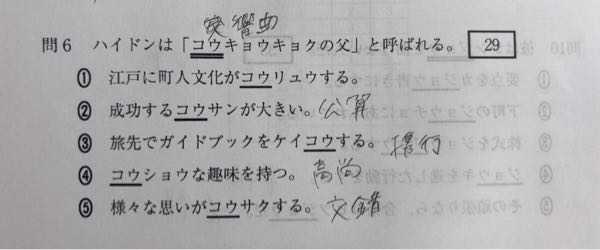 交響曲
問6 ハイドンは「コウキョウキョクの父」と呼ばれる。 29
① 江戸に町人文化がコウリュウする。
② 成功するコウサンが大きい。 公算
③ 旅先でガイドブックをケイコウする。 携行
④ コウショウな趣味を持つ。 高尚
⑤ 様々な思いがコウサクする。 交錯